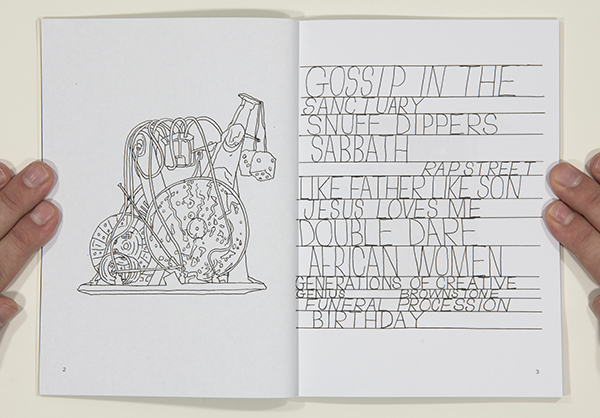 GOSSIP IN THE
SANCTUARY
SNUFF DIPPERS
SABBATH
RAP STREET
LIKE FATHER LIKE SON
JESUS LOVES ME
DOUBLE DARE
AFRICAN WOMEN
GENERATIONS OF CREATIVE
GENIUS BROWNSTONE
FUNERAL PROCESSION
BIRTHDAY
2
3